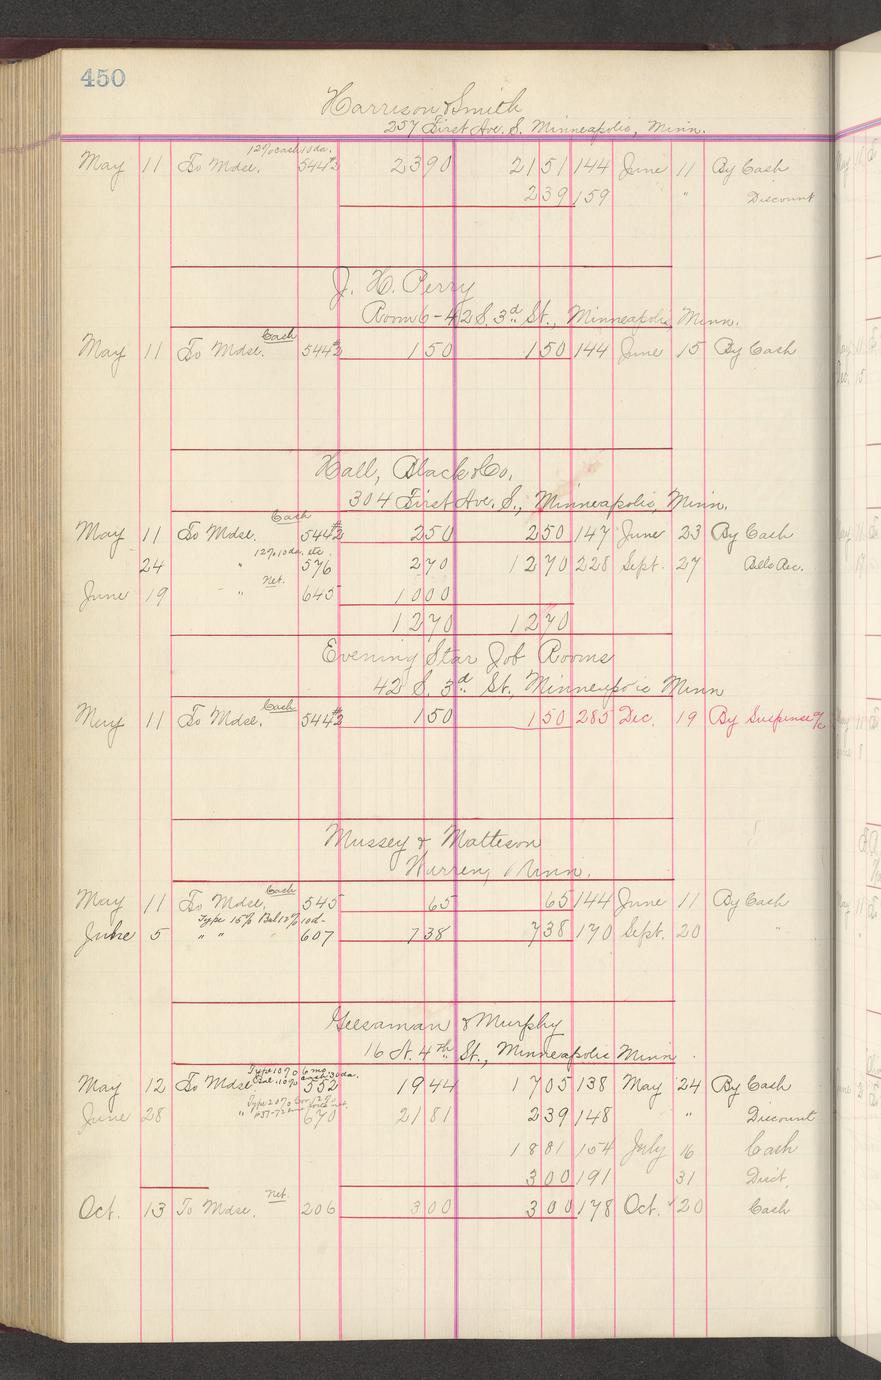 450
Harrison & Smith
257 First Ave. S. Minneapolis, Minn.
12% cash 10 da.
May 11 To Mdse. 544½ 2390 2151 144 June 11 By Cash
239 159 " Discount
J. H. Perry
Room 6-42 S. 3d St., Minneapolis, Minn.
Cash
May 11 To Mdse. 544½ 150 150 144 June 15 By Cash
Hall, Black & Co.
304 First Ave. S., Minneapolis, Minn.
Cash
May 11 To Mdse. 544½ 250 250 147 June 23 By Cash
12% 10 da. etc.
24 " 576 270 1270 228 Sept. 27 Bills Rec.
Net.
June 19 " 645 1000
1270 1270
Evening Star Job Rooms
42 S. 3d St., Minneapolis Minn
Cash
May 11 To Mdse. 544½ 150 150 285 Dec. 19 By Suspense a/c
Mussey & Matteson
Warren, Minn.
Cash
May 11 To Mdse. 545 65 65 144 June 11 By Cash
Type 15% Bal 12% 10 d-
June 5 " " 607 738 738 170 Sept. 20 "
Geesaman & Murphy
16 N. 4th St., Minneapolis Minn.
Type 10% 6 mo.
Bal. 10% cash 30 da.
May 12 To Mdse 552 1944 1705 138 May 24 By Cash
Type 20%
June 28 " 670 2181 239 148 " Discount
1881 154 July 16 Cash
300 191 31 Dist.
Net.
Oct. 13 To Mdse. 206 300 300 178 Oct. 20 Cash